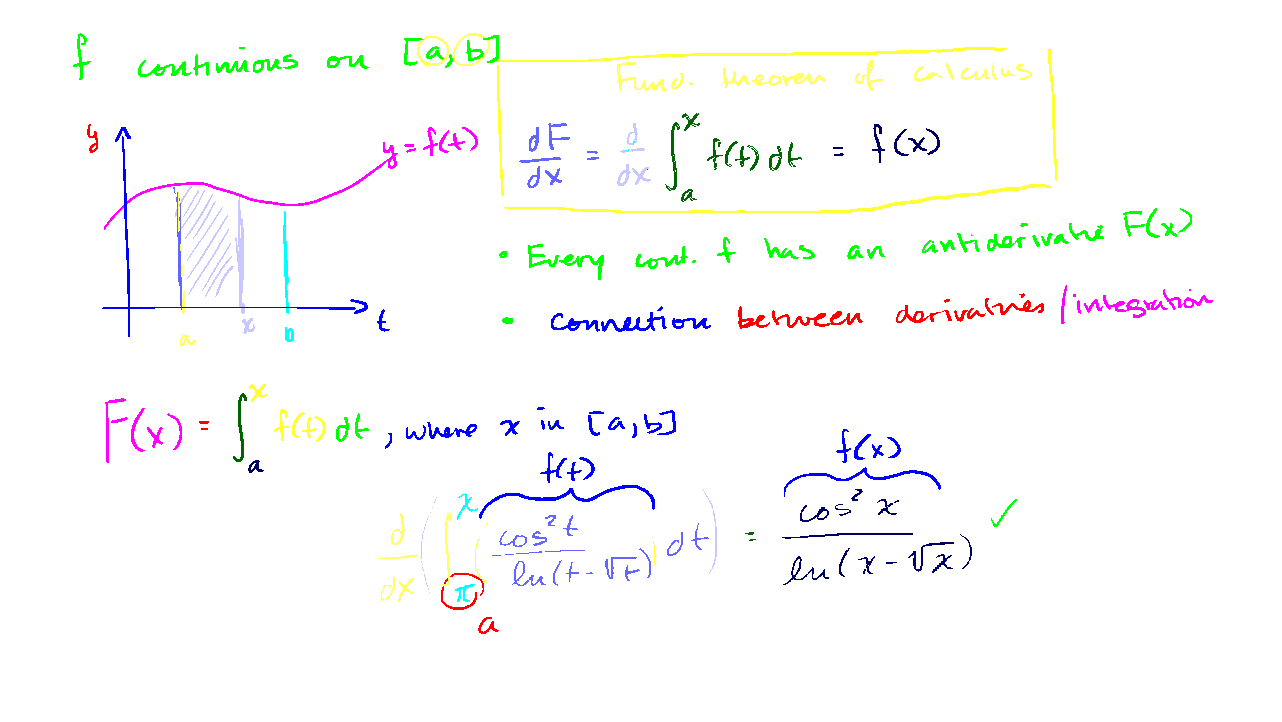 f continuous on [a, b]
Fund. theorem of calculus
dF/dx = d/dx ∫_a^x f(t) dt = f(x)
y
y = f(t)
a
x
b
t
• Every cont. f has an antiderivative F(x)
• connection between derivatives / integration
F(x) = ∫_a^x f(t) dt, where x in [a, b]
f(t)
f(x)
d/dx ( ∫_π^x ( cos² t / ln(t - √t) ) dt ) = cos² x / ln(x - √x) ✓
a